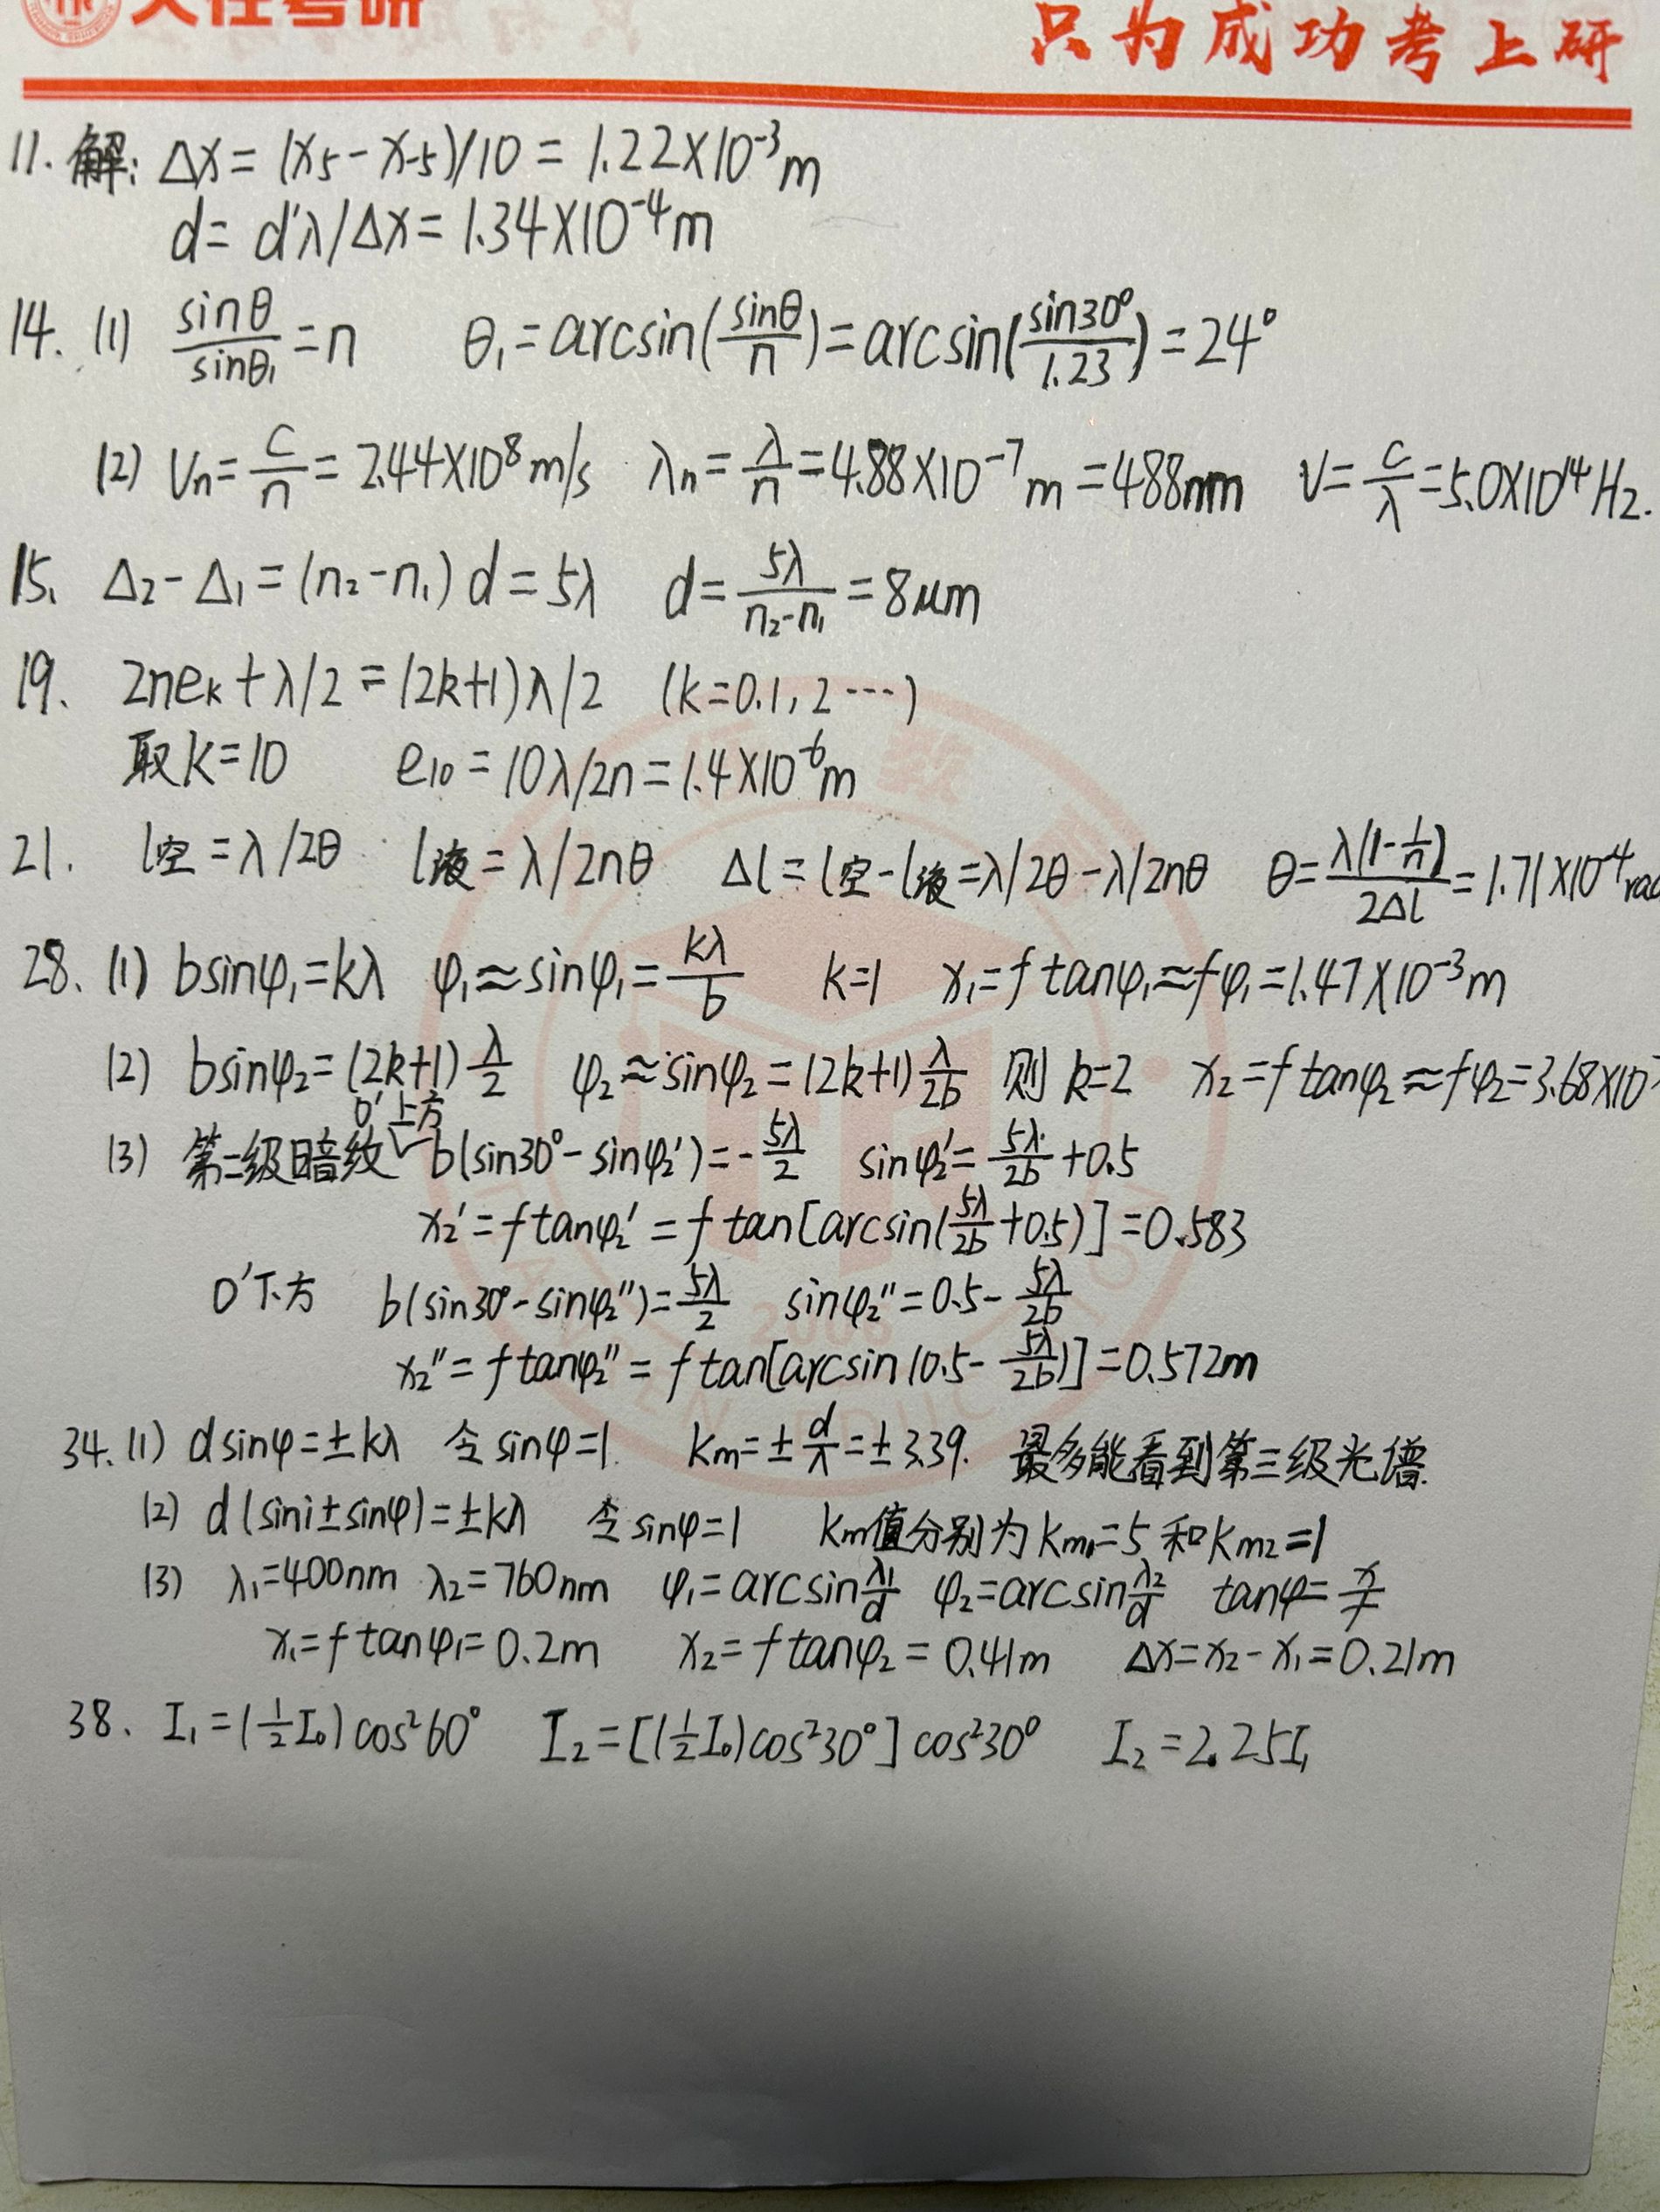 天任考研
只为成功考上研
11. 解: Δx = (x₅ - x₋₅)/10 = 1.22×10⁻³m
d = d'λ/Δx = 1.34×10⁻⁴m
14. (1) sinθ/sinθ₁ = n θ₁ = arcsin(sinθ/n) = arcsin(sin30°/1.23) = 24°
(2) Vn = c/n = 2.44×10⁸m/s λn = λ/n = 4.88×10⁻⁷m = 488nm ν = c/λ = 5.0×10¹⁴Hz.
15. Δ₂ - Δ₁ = (n₂-n₁)d = 5λ d = 5λ/(n₂-n₁) = 8μm
19. 2neₖ + λ/2 = (2k+1)λ/2 (k=0.1,2⋯)
取k=10 e₁₀ = 10λ/2n = 1.4×10⁻⁶m
21. l空 = λ/2θ l液 = λ/2nθ Δl = l空 - l液 = λ/2θ - λ/2nθ θ = λ(1-1/n)/2Δl = 1.71×10⁻⁴rad
28. (1) bsinφ₁ = kλ φ₁ ≈ sinφ₁ = kλ/b k=1 x₁ = f tanφ₁ ≈ fφ₁ = 1.47×10⁻³m
(2) bsinφ₂ = (2k+1)λ/2 φ₂ ≈ sinφ₂ = (2k+1)λ/2b 则 k=2 x₂ = f tanφ₂ ≈ fφ₂ = 3.68×10
(3) 第二级暗纹 O'上方 b(sin30° - sinφ₂') = -5λ/2 sinφ₂' = 5λ/2b + 0.5
x₂' = f tanφ₂' = f tan[arcsin(5λ/2b + 0.5)] = 0.583
O'下方 b(sin30° - sinφ₂'') = 5λ/2 sinφ₂'' = 0.5 - 5λ/2b
x₂'' = f tanφ₂'' = f tan[arcsin(0.5 - 5λ/2b)] = 0.572m
34. (1) dsinφ = ±kλ 令 sinφ=1. km = ±d/λ = ±3.39. 最多能看到第三级光谱.
(2) d(sini±sinφ) = ±kλ 令 sinφ=1 km值分别为 km₁=5 和 km₂=1
(3) λ₁=400nm λ₂=760nm φ₁ = arcsin λ₁/d φ₂ = arcsin λ₂/d tanφ = x/f
x₁ = f tanφ₁ = 0.2m x₂ = f tanφ₂ = 0.41m Δx = x₂ - x₁ = 0.21m
38. I₁ = (½I₀)cos²60° I₂ = [(½I₀)cos²30°]cos²30° I₂ = 2.25I₁